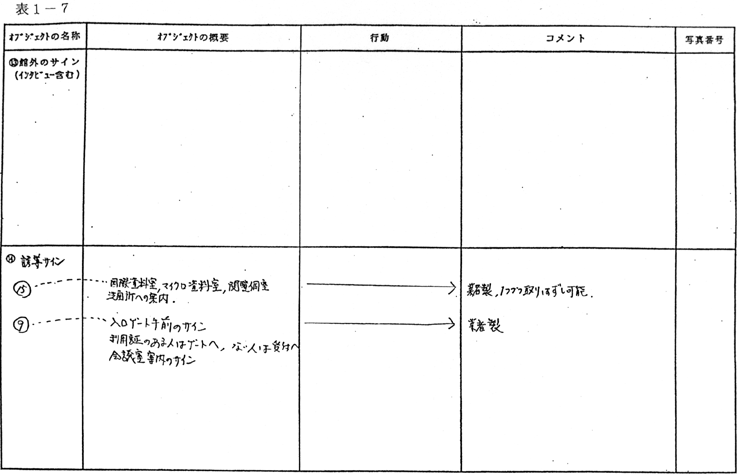 表1－7
オブジェクトの名称 オブジェクトの概要 行動 コメント 写真番号
⑬館外のサイン
(インタビュー含む)
⑭ 誘導サイン
⑮ 国際資料室,マイクロ資料室,閲覧個室 業者製,1つづつ取りはずし可能.
への案内.
⑨ 入口ゲート手前のサイン 業者製
利用証のある人はゲートへ,ない人は受付へ
会議室案内のサイン